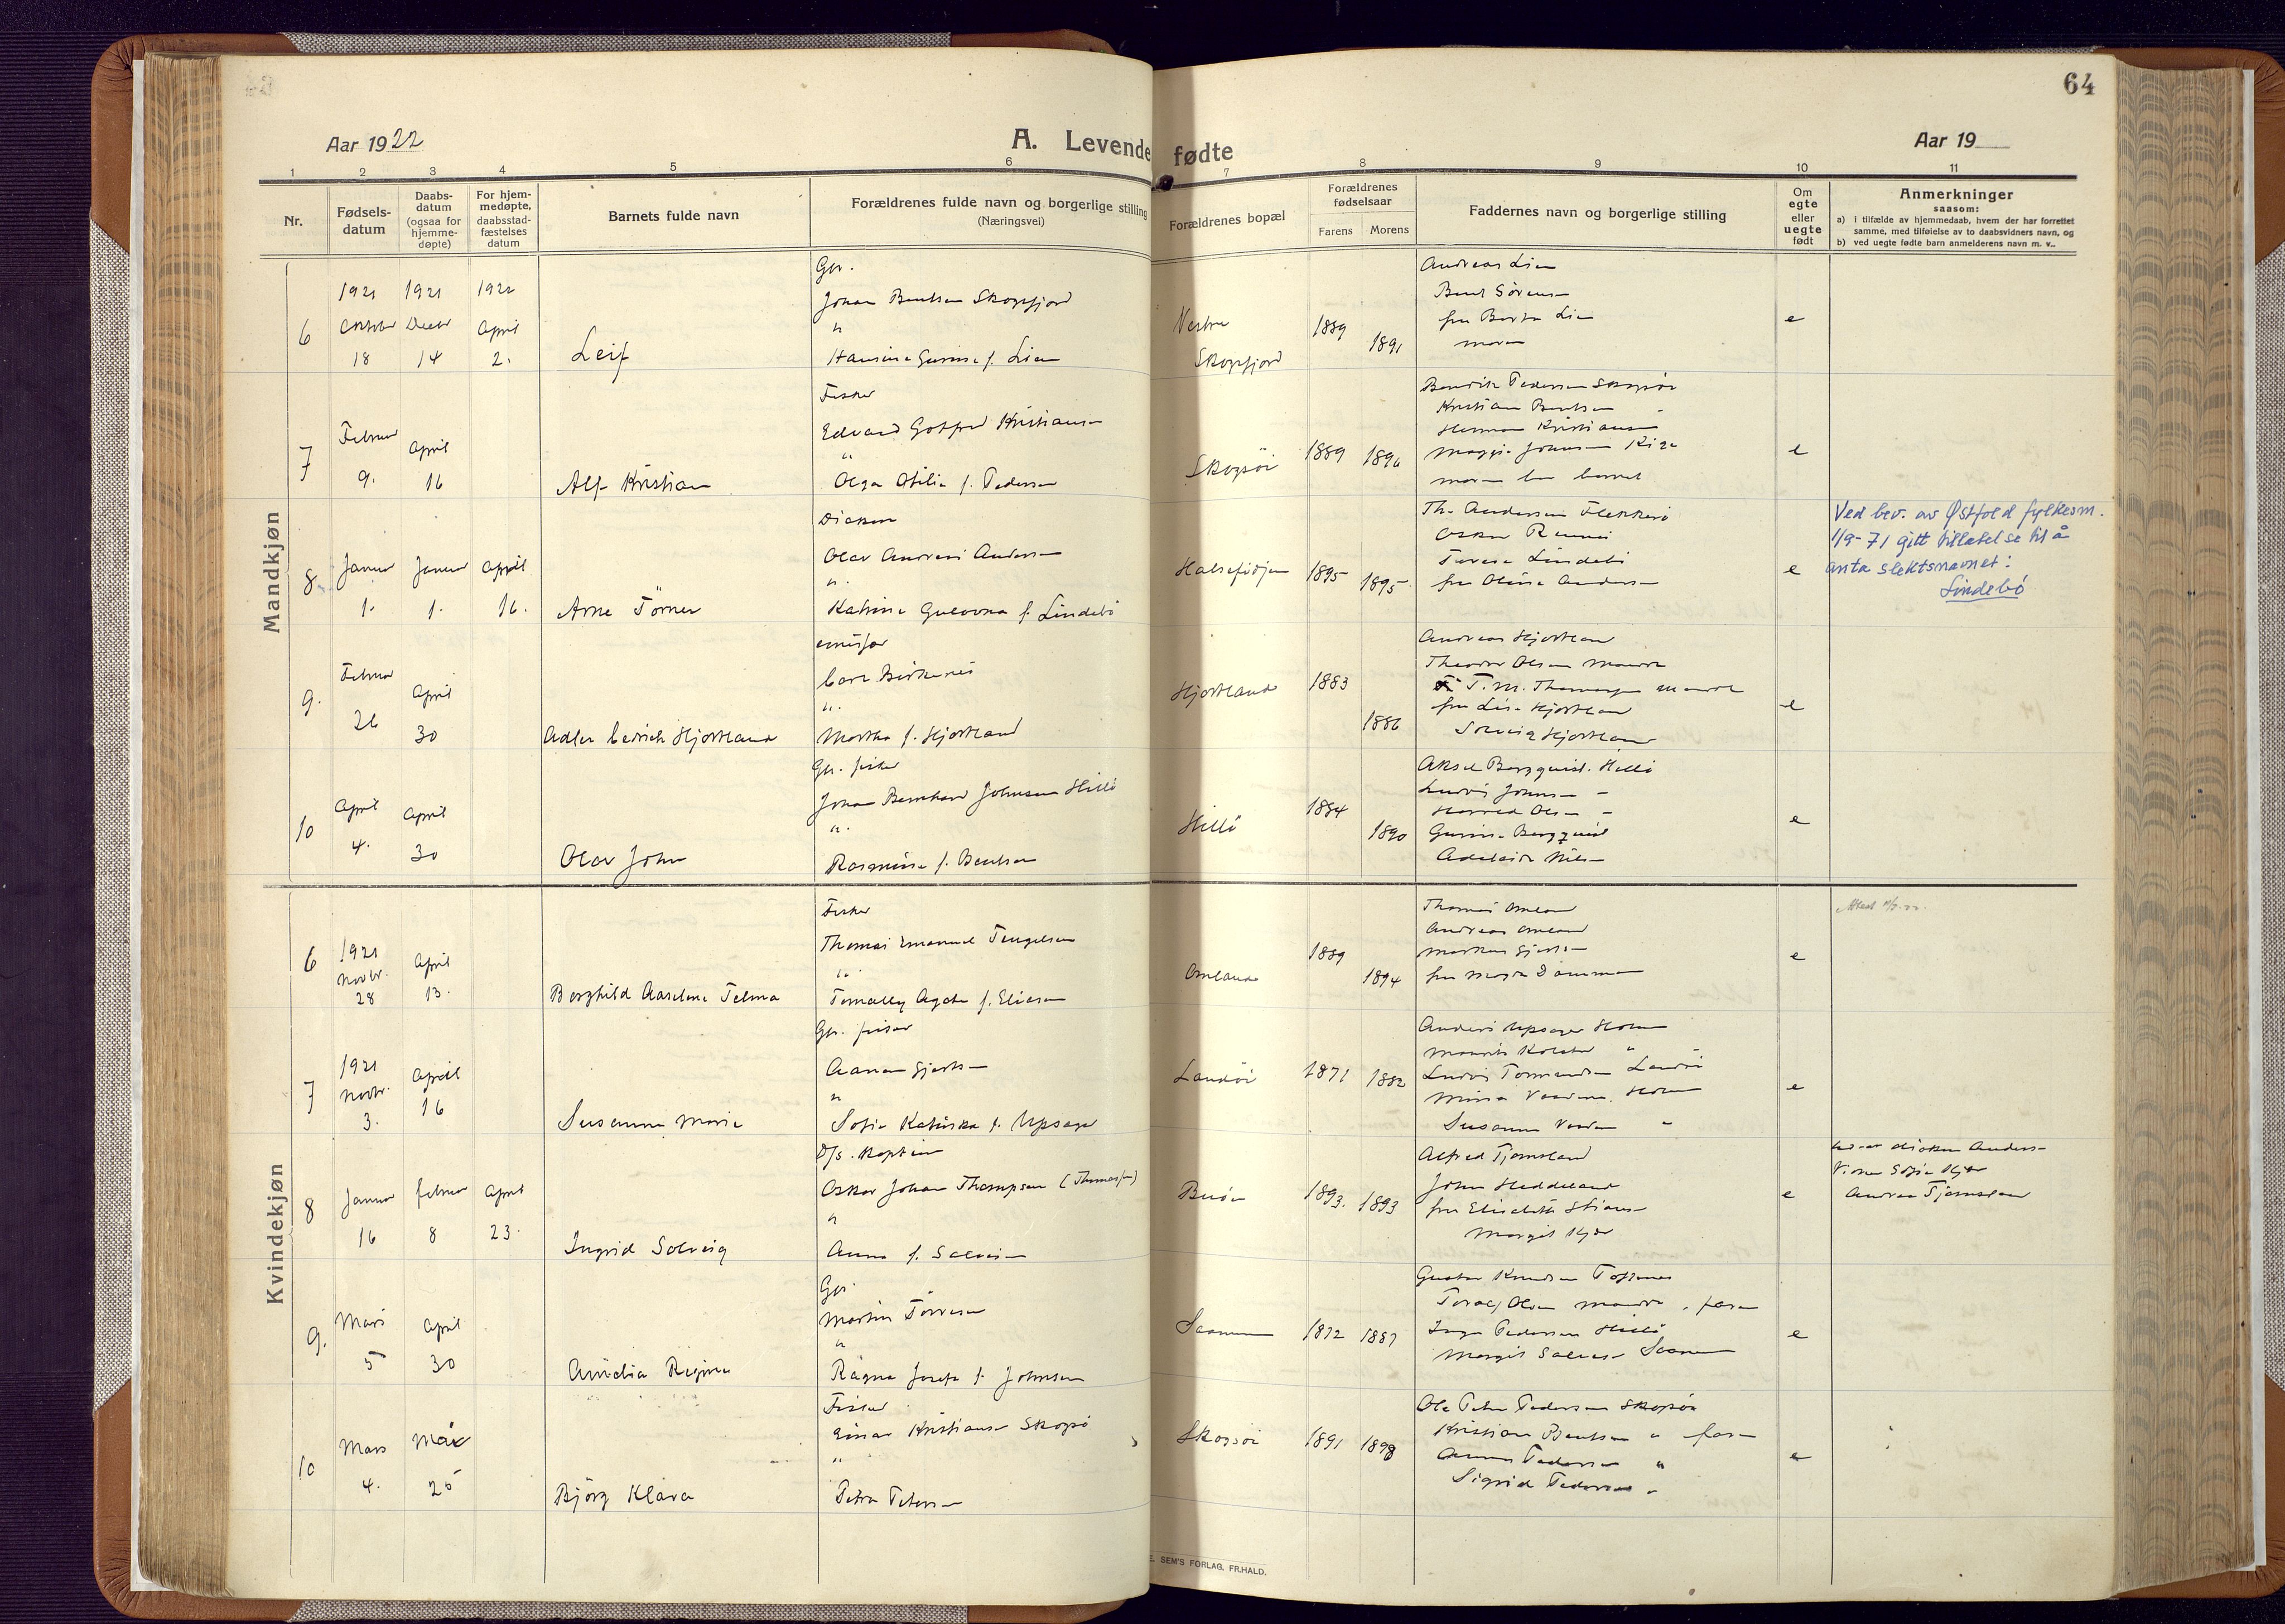 64
Aar 1922
A. Levende fødte
Aar 19
1 2 3 4 5 6 7 8 9 10 11
Nr.
Fødsels-
datum
Daabs-
datum
(ogsaa for
hjemme-
døpte)
For hjem-
medøpte,
daabsstad-
fæstelses
datum
Barnets fulde navn
Forældrenes fulde navn og borgerlige stilling
(Næringsvei)
Forældrenes bopæl
Forældrenes
fødselsaar
Farens Morens
Faddernes navn og borgerlige stilling
Om
egte
eller
uegte
født
Anmerkninger
saasom:
a) i tilfælde av hjemmedaab, hvem der har forrettet
samme, med tilføielse av to daabsvidners navn, og
b) ved uegte fødte barn anmelderens navn m. v..
Mandkjøn
6
1921 1921 1922
Oktober Decbr April
18 14 2.
Leif
Gbr.
Johan Bentsen Skogsfjord
"
Hansine Gurine f. Lien
Vestre
Skogsfjord
1889 1891
Andreas Lien
Bent Sörensen
fru Berta Lien
moren
e
7
Februar April
9. 16
Alf Kristian
Fisker
Edvard Gotfred Kristiansen
"
Olga Otilie f. Pedersen
Skogsöi
1889 1896
Bendik Pedersen Skogsöi
Kristian Bentsen "
Herman Kristiansen
Maggie Johnsen
moren bar barnet
e
8.
Januar Januar April
1. 1. 16.
Arne Törner
Diakon
Olav Andreas Andersen
"
Katrine Gulovna f. Lindebö
Halsefidjen
1895 1895
Th. Andersen Flekkerö
Oskar
Lindebö
fru Andersen
e
Ved bev. av Østfold fylkesm.
1/9-71 gitt tillatelse til å
anta slektsnavnet:
Lindebö
9.
Februar April
26 30
Adler Cedrick Hjortland
emissær
Carl Birkenes
"
Martha f. Hjortland
Hjortland
1883 1886
Andreas Hjortland
Theodor Olsen
T. M. Thomassen
fru Lise Hjortland
Solveig Hjortland
e
10
April April
4. 30
Olav John
Gbr. fisker
Johan Bernhard Johnsen Hillö
"
Rasmine f. Bentsen
Hillö
1884 1890
Aksel Bergquist. Hillö
Ludvig Johnsen "
Harald Olsen "
Gurine Bergquist
Adelaide Nilsen
e
Kvindekjøn
6
1921
Novbr. April
28 13.
Borghild Aaselene Telma
Fisker
Thomas Emanuel Tengelsen
"
Tomally Agate f. Eliasen
Omland
1889 1894
Thomas Omland
Andreas Omland
Markus Gjertsen
fru
e
7
1921
Novbr. April
3. 16
Susanne Marie
Gbr. fisker
Aanen Gjertsen
"
Sofie Katinka f. Upsager
Landöi
1871 1882
Anders Upsager Holmen
Maurits "
Ludvig Tormundsen Landöi
Holmen
Susanne "
e
8
Januar februar April
16 8 23.
Ingrid Solveig
D/s. Kaptein
Oskar Johan Thompsen (Thomassen)
"
Anna f. Salvesen
Buöen
1893. 1893
Alfred Tjomsland
John Heddeland
fru Elisabeth Stiansen
Margit Kjær
e
av diakon Andersen
Sofie Kjær
Andrea Tjomsland
9.
Mars April
5 30
Amelia Regine
Gbr.
Martin Törresen
"
Ragna Josefa f. Johnsen
Saanum
1872 1887
Gustav Knudsen Tofsenes
Toralf Olsen , faren
Inga Pedersen Hillö
Margit Saanum
e
10
Mars Mai
4. 25
Björg Klara
Fisker
Einar Kristiansen Skogsö
"
Petra Petersen
Skogsöi
1891 1898
Ole Peter Pedersen Skogsöi
Kristian Bentsen " faren
Pedersen "
Sigrid Pedersen "
e
E. SEM'S FORLAG, FR.HALD.